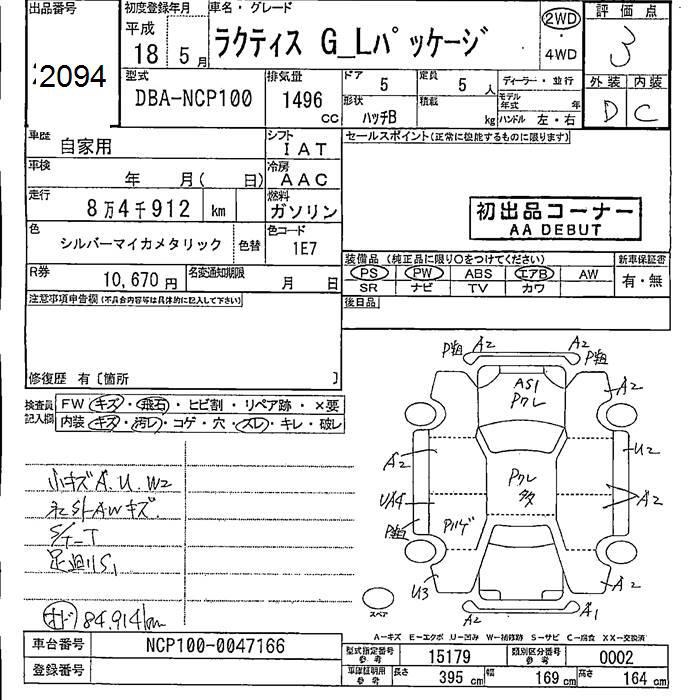 出品番号
2094
初度登録年月
平成
18 5月
車名・グレード
ラクティス G_Lパッケージ
2WD
・
4WD
評価点
3
外装 内装
D C
型式
DBA-NCP100
排気量
1496
cc
ドア
5
定員
5 人
ディーラー・並行
形状
ハッチB
積載
kg
モデル年式 年
ハンドル 左・右
車歴
自家用
シフト
IAT
セールスポイント(正常に機能するものに限ります)
車検
年 月( 日)
冷房
AAC
走行
8万4千912 km
燃料
ガソリン
初出品コーナー
AA DEBUT
色
シルバーマイカメタリック
色替
色コード
1E7
R券
10,670円
名変通知期限
月 日
装備品(純正品に限り○をつけてください)
新車保証書
PS PW ABS エアB AW
SR ナビ TV カワ
有・無
後日品
注意事項申告欄(不具合内容等は具体的に記入して下さい)
修復歴 有〔箇所 〕
検査員
記入欄
FW キズ・飛石・ヒビ割・リペア跡・×要
内装・キズ・汚レ・コゲ・穴・スレ・キレ・破レ
小キズ A.U.W2
キズ.
足廻りS1
84.914km
A2
A2
AS1
Pクレ
A2
A2
U2
Pクレ
多
UA4
A2
Pハゲ
U3
A2
A2
A1
スペア
A−キズ E−エクボ U−凹み W−補修跡 S−サビ C−腐食 XX−交換済
車台番号
NCP100-0047166
登録番号
型式指定番号
参考
15179
類別区分番号
参考
0002
車庫証明用
参考
長さ 395 cm
幅 169 cm
高さ 164 cm